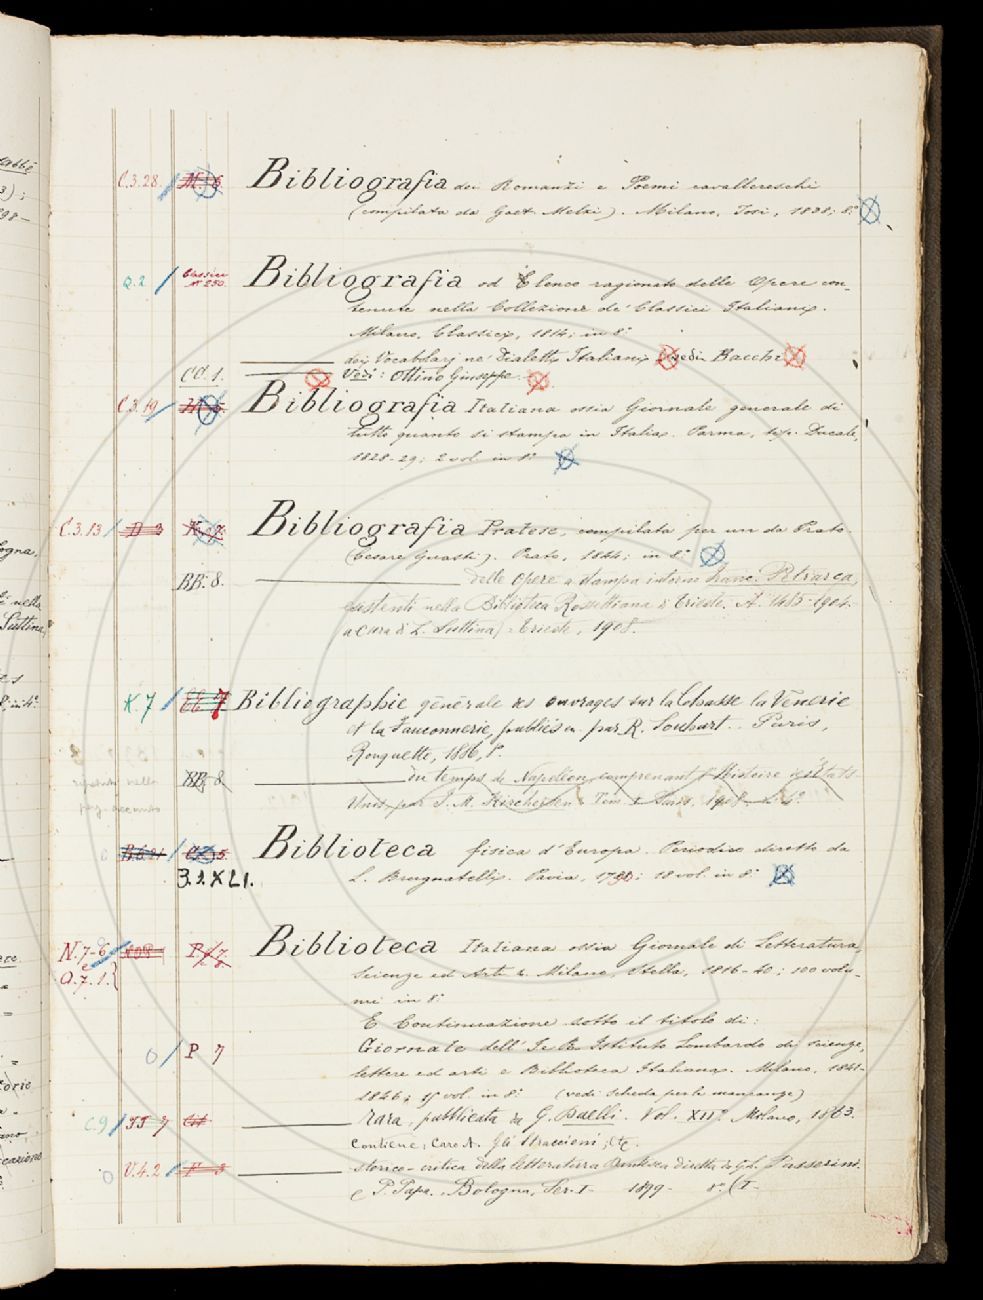 C.3.28 / Bibliografia dei Romanzi e Poemi cavallereschi
(compilata da Gaet. Melzi). Milano, Tosi, 1838; 8°
Q.2 / Classici n° 250. Bibliografia od Elenco ragionato delle Opere con-
tenute nella Collezione de' Classici Italiani.
Milano, Classici, 1814; in 8°
dei Vocabolarj ne' Dialetti Italiani vedi Bacchi
CC. 1. Vedi: Ottino Giuseppe
C.3.19 / Bibliografia Italiana ossia Giornale generale di
tutto quanto si stampa in Italia. Parma, tip. Ducale,
1828-29; 2 vol. in 8°
C.3.13 / D 3 Bibliografia Pratese, compilata per un da Prato
(Cesare Guasti). Prato, 1844; in 8°
BB. 8. delle Opere a stampa intorno Franc. Petrarca,
esistenti nella Biblioteca Rossettiana di Trieste. A. 1485-1904.
a cura di L. Suttina) Trieste, 1908.
K.7 / 7 Bibliographie générale des ouvrages sur la Chasse la Vénerie
et la Fauconnerie, publiés par R. Souhart. Paris,
Rouquette, 1886, 8°
BB. 8 du temps de Napoléon, comprenant l'Histoire des États
Unis par J. M. Kircheisen 1908
B.6.21 / 5. Biblioteca fisica d'Europa. Periodico diretto da
3.2.XLI. L. Brugnatelli. Pavia, 18 vol. in 8°
N.7-6 / P 7 Biblioteca Italiana ossia Giornale di Letteratura,
e
Q.7.1.} Scienze ed Arti. Milano, Stella, 1816-40; 100 volu-
mi in 8°
E Continuazione sotto il titolo di:
0 / P 7 Giornale dell' I. e R. Istituto Lombardo di scienze,
lettere ed arti e Biblioteca Italiana. Milano, 1841-
1846; vol. in 8° (vedi scheda per le mancanze)
C.9 / II 7 rara, pubblicata da G. Daelli. Vol. XII° Milano, 1863.
Contiene: Caro A. Gli Straccioni; etc.
0 V.4.2 / F 3 storico-critica della letteratura Dantesca diretta da G. L. Passerini
e P. Papa. Bologna, Ser. I- 1899- 8° (I-